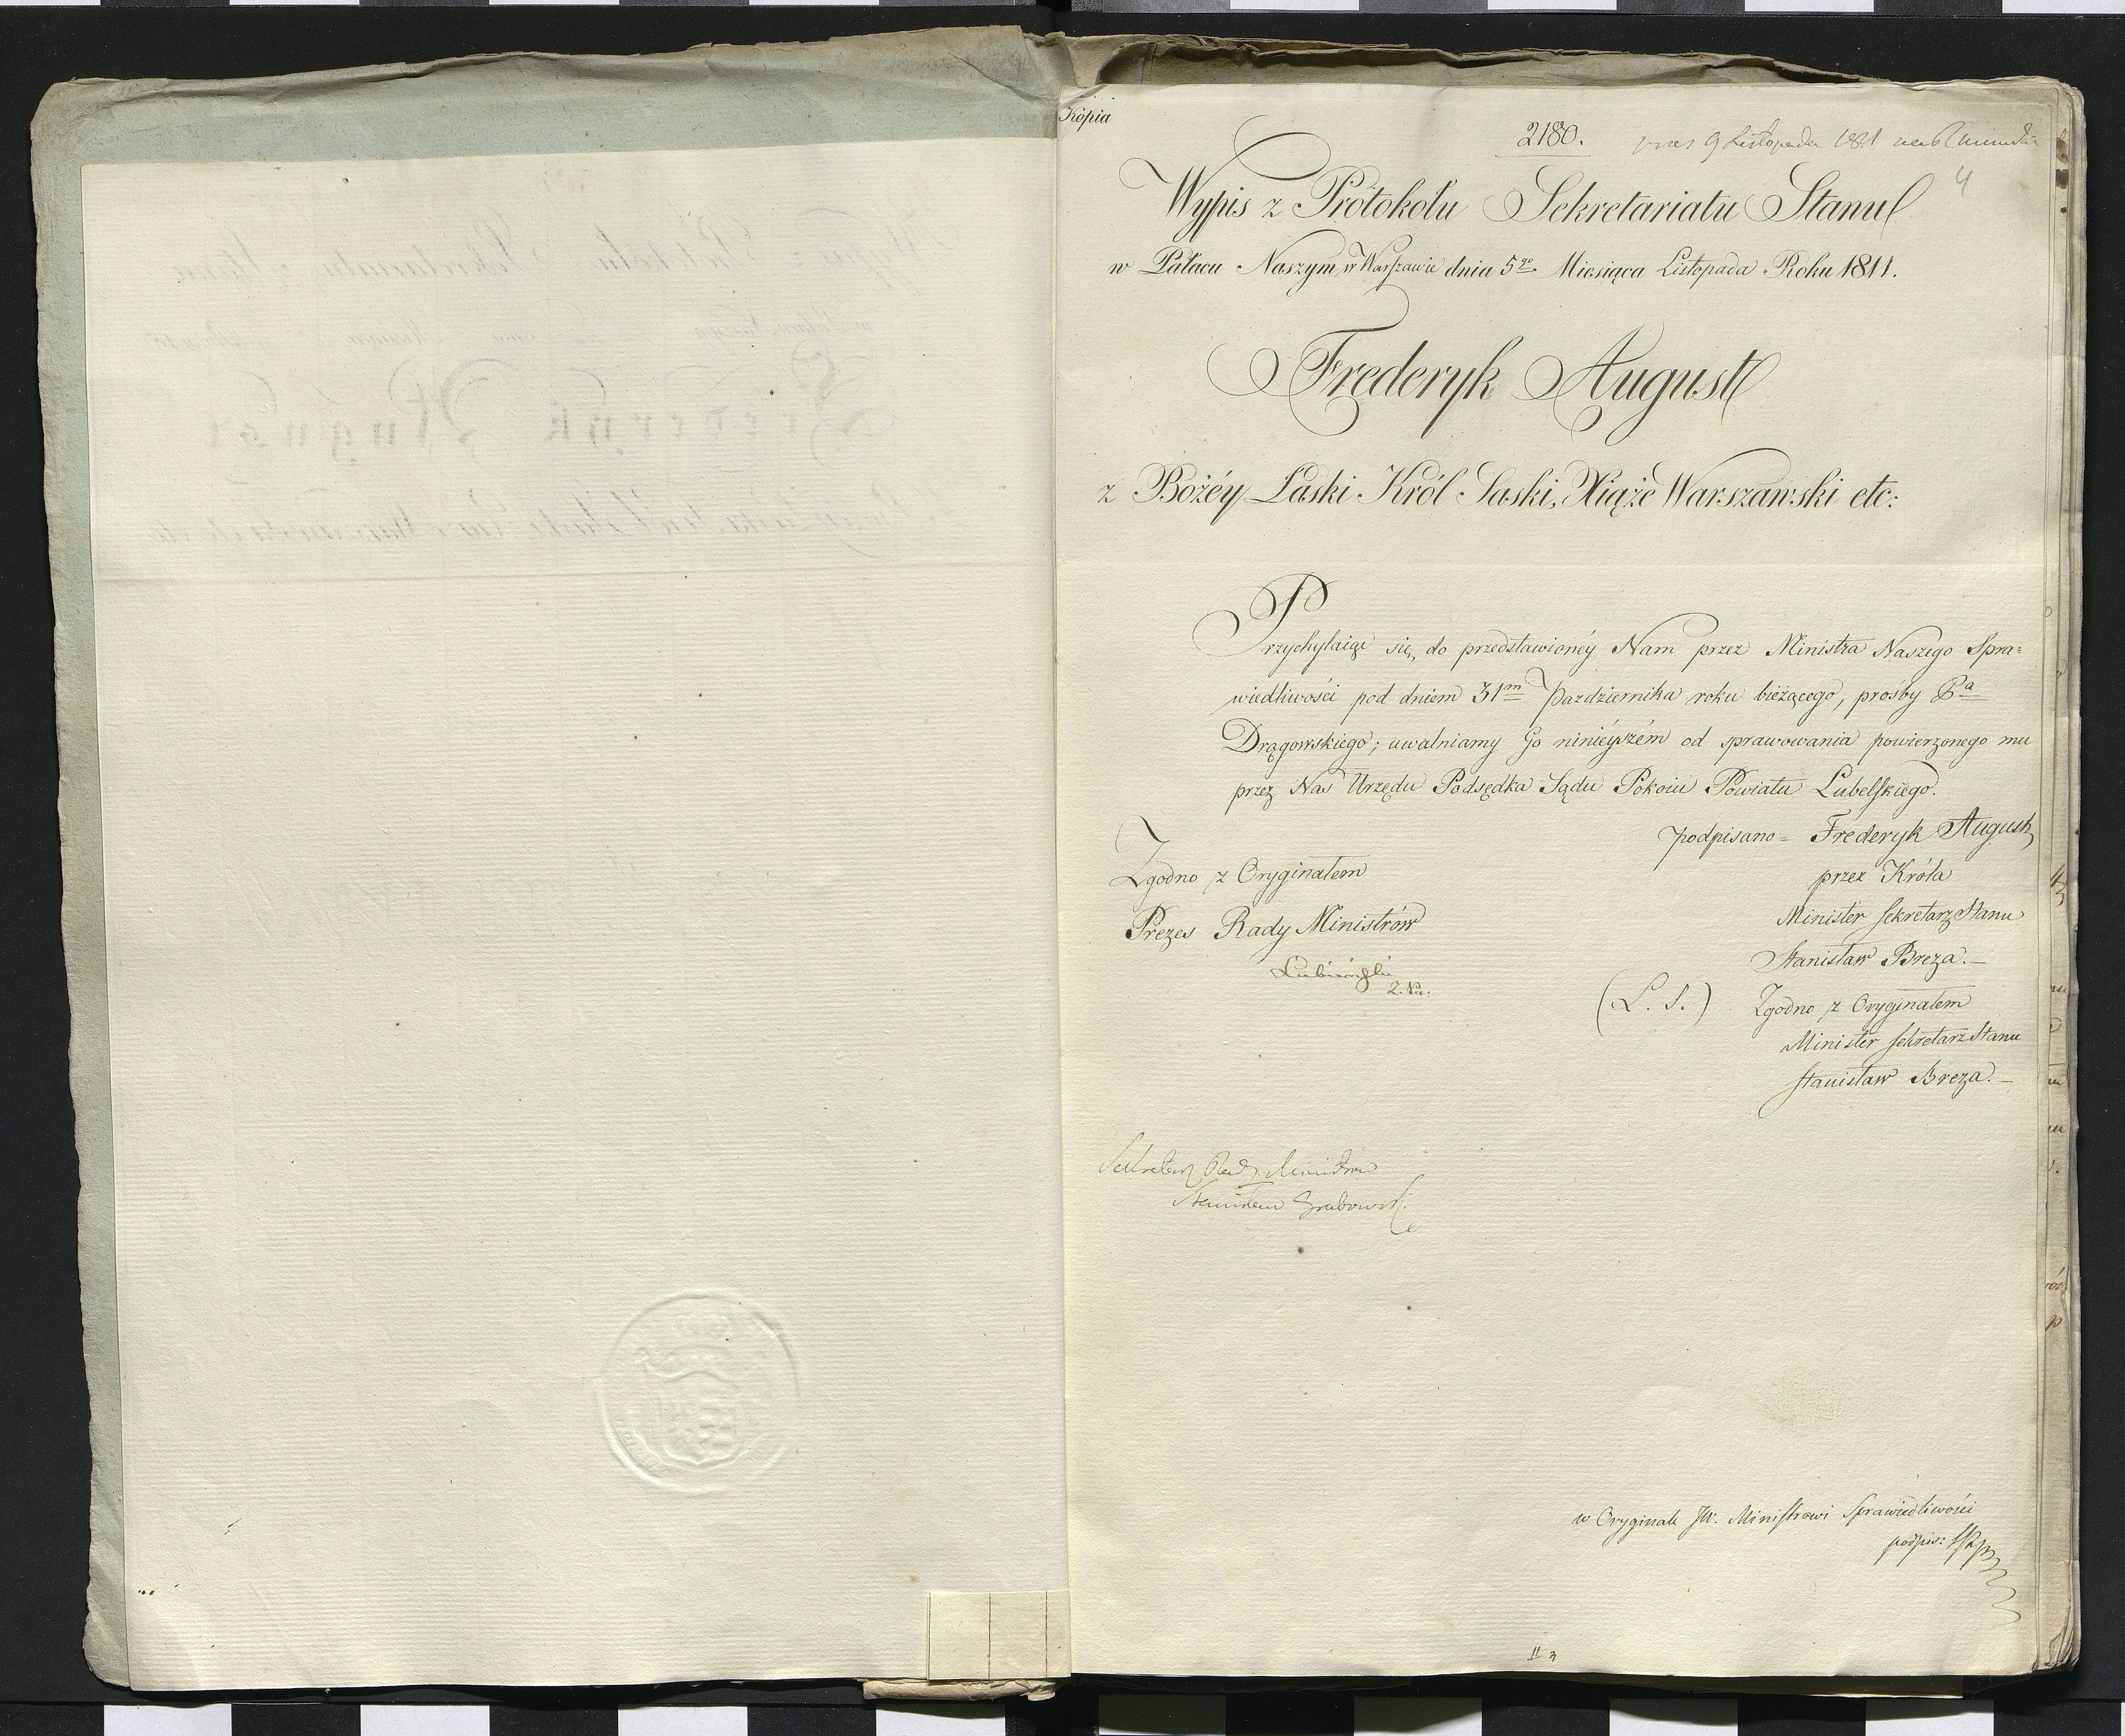 Kopia
2180.
9 Listopada 1811
4
Wypis z Protokołu Sekretariatu Stanu
w Pałacu Naszym w Warszawie dnia 5go Miesiąca Listopada Roku 1811.
Frederyk August
z Bożéy Łaski Król Saski, Xiąże Warszawski etc:
Przychylaiąc się, do przedstawionéy Nam przez Ministra Naszego Spra=
wiedliwości pod dniem 31m Pazdziernika roku bieżącego, prośby Pa
Drągowskiego; uwalniamy Go ninieyszém od sprawowania powierzonego mu
przez Nas Urzędu Podsędka Sądu Pokoiu Powiatu Lubelskiego.
podpisano = Frederyk August
przez Króla
Minister Sekretarz Stanu
Stanisław Breza.—
(L. S.) Zgodno z Oryginałem
Minister Sekretarz Stanu
Stanisław Breza.—
Zgodno z Oryginałem
Prezes Rady Ministrów
Sekretarz Rady Ministrów
Stanisław Grabowski
w Oryginale JW. Ministrowi Sprawiedliwości
podpis: